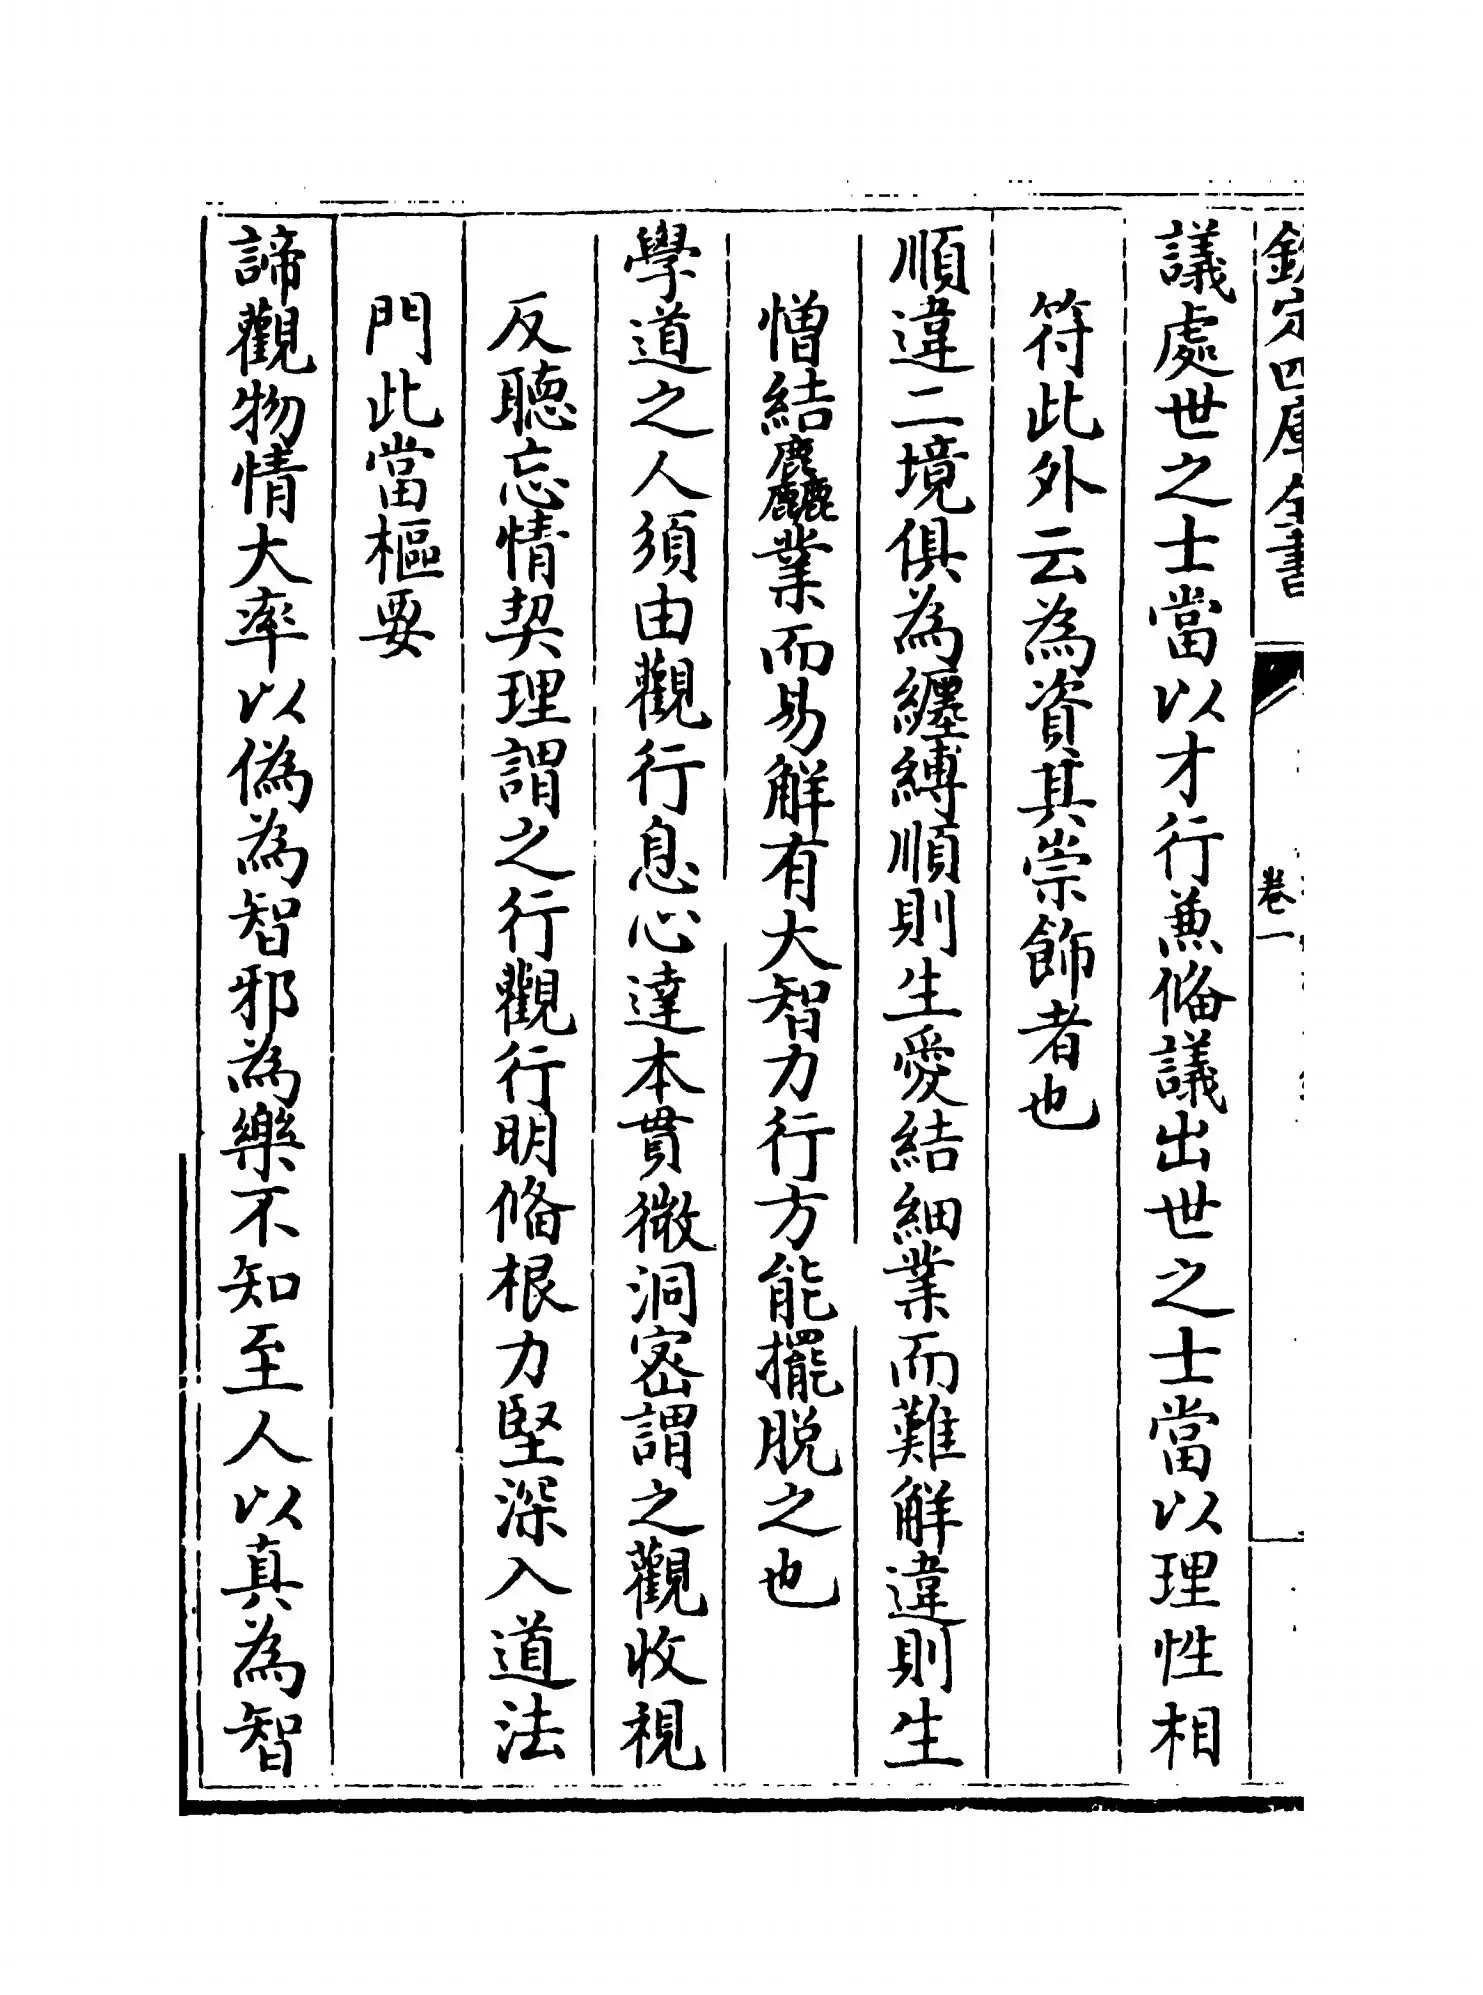 欽定四庫全書
卷一
議處世之士當以才行兼備議出世之士當以理性相
符此外云為資其崇飾者也
順違二境俱為纏縛順則生愛結細業而難解違則生
憎結麤業而易解有大智力行方能擺脫之也
學道之人須由觀行息心達本貫微洞密謂之觀收視
反聽忘情契理謂之行觀行明脩根力堅深入道法
門此當樞要
諦觀物情大率以偽為智邪為樂不知至人以真為智